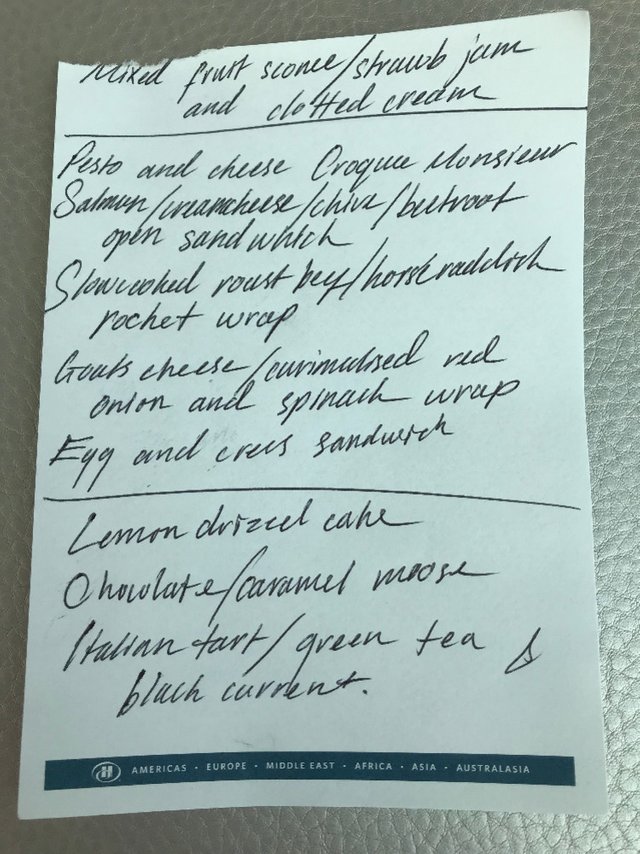 Mixed fruit sconce/strawb jam
and clotted cream
Pesto and cheese Croque Monsieur
Salmon/creamcheese/chive/beetroot
open sandwhich
Slowcooked roast beef/horseraddish
rocket wrap
Goats cheese/carimalised red
onion and spinach wrap
Egg and cress sandwich
Lemon drizzel cake
Chocolate/caramel moose
Italian tart/green tea &
black current.
H AMERICAS · EUROPE · MIDDLE EAST · AFRICA · ASIA · AUSTRALASIA